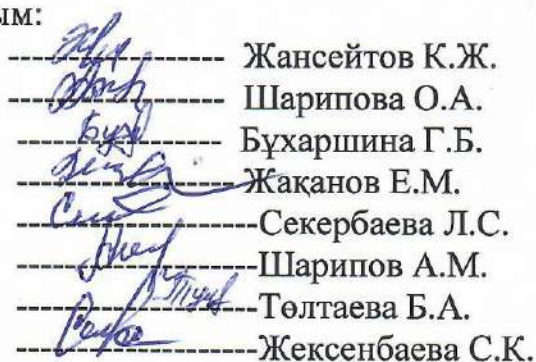 ым:
Жансейтов К.Ж.
Шарипова О.А.
Бұхаршина Г.Б.
Жақанов Е.М.
Секербаева Л.С.
Шарипов А.М.
Төлтаева Б.А.
Жексенбаева С.К.